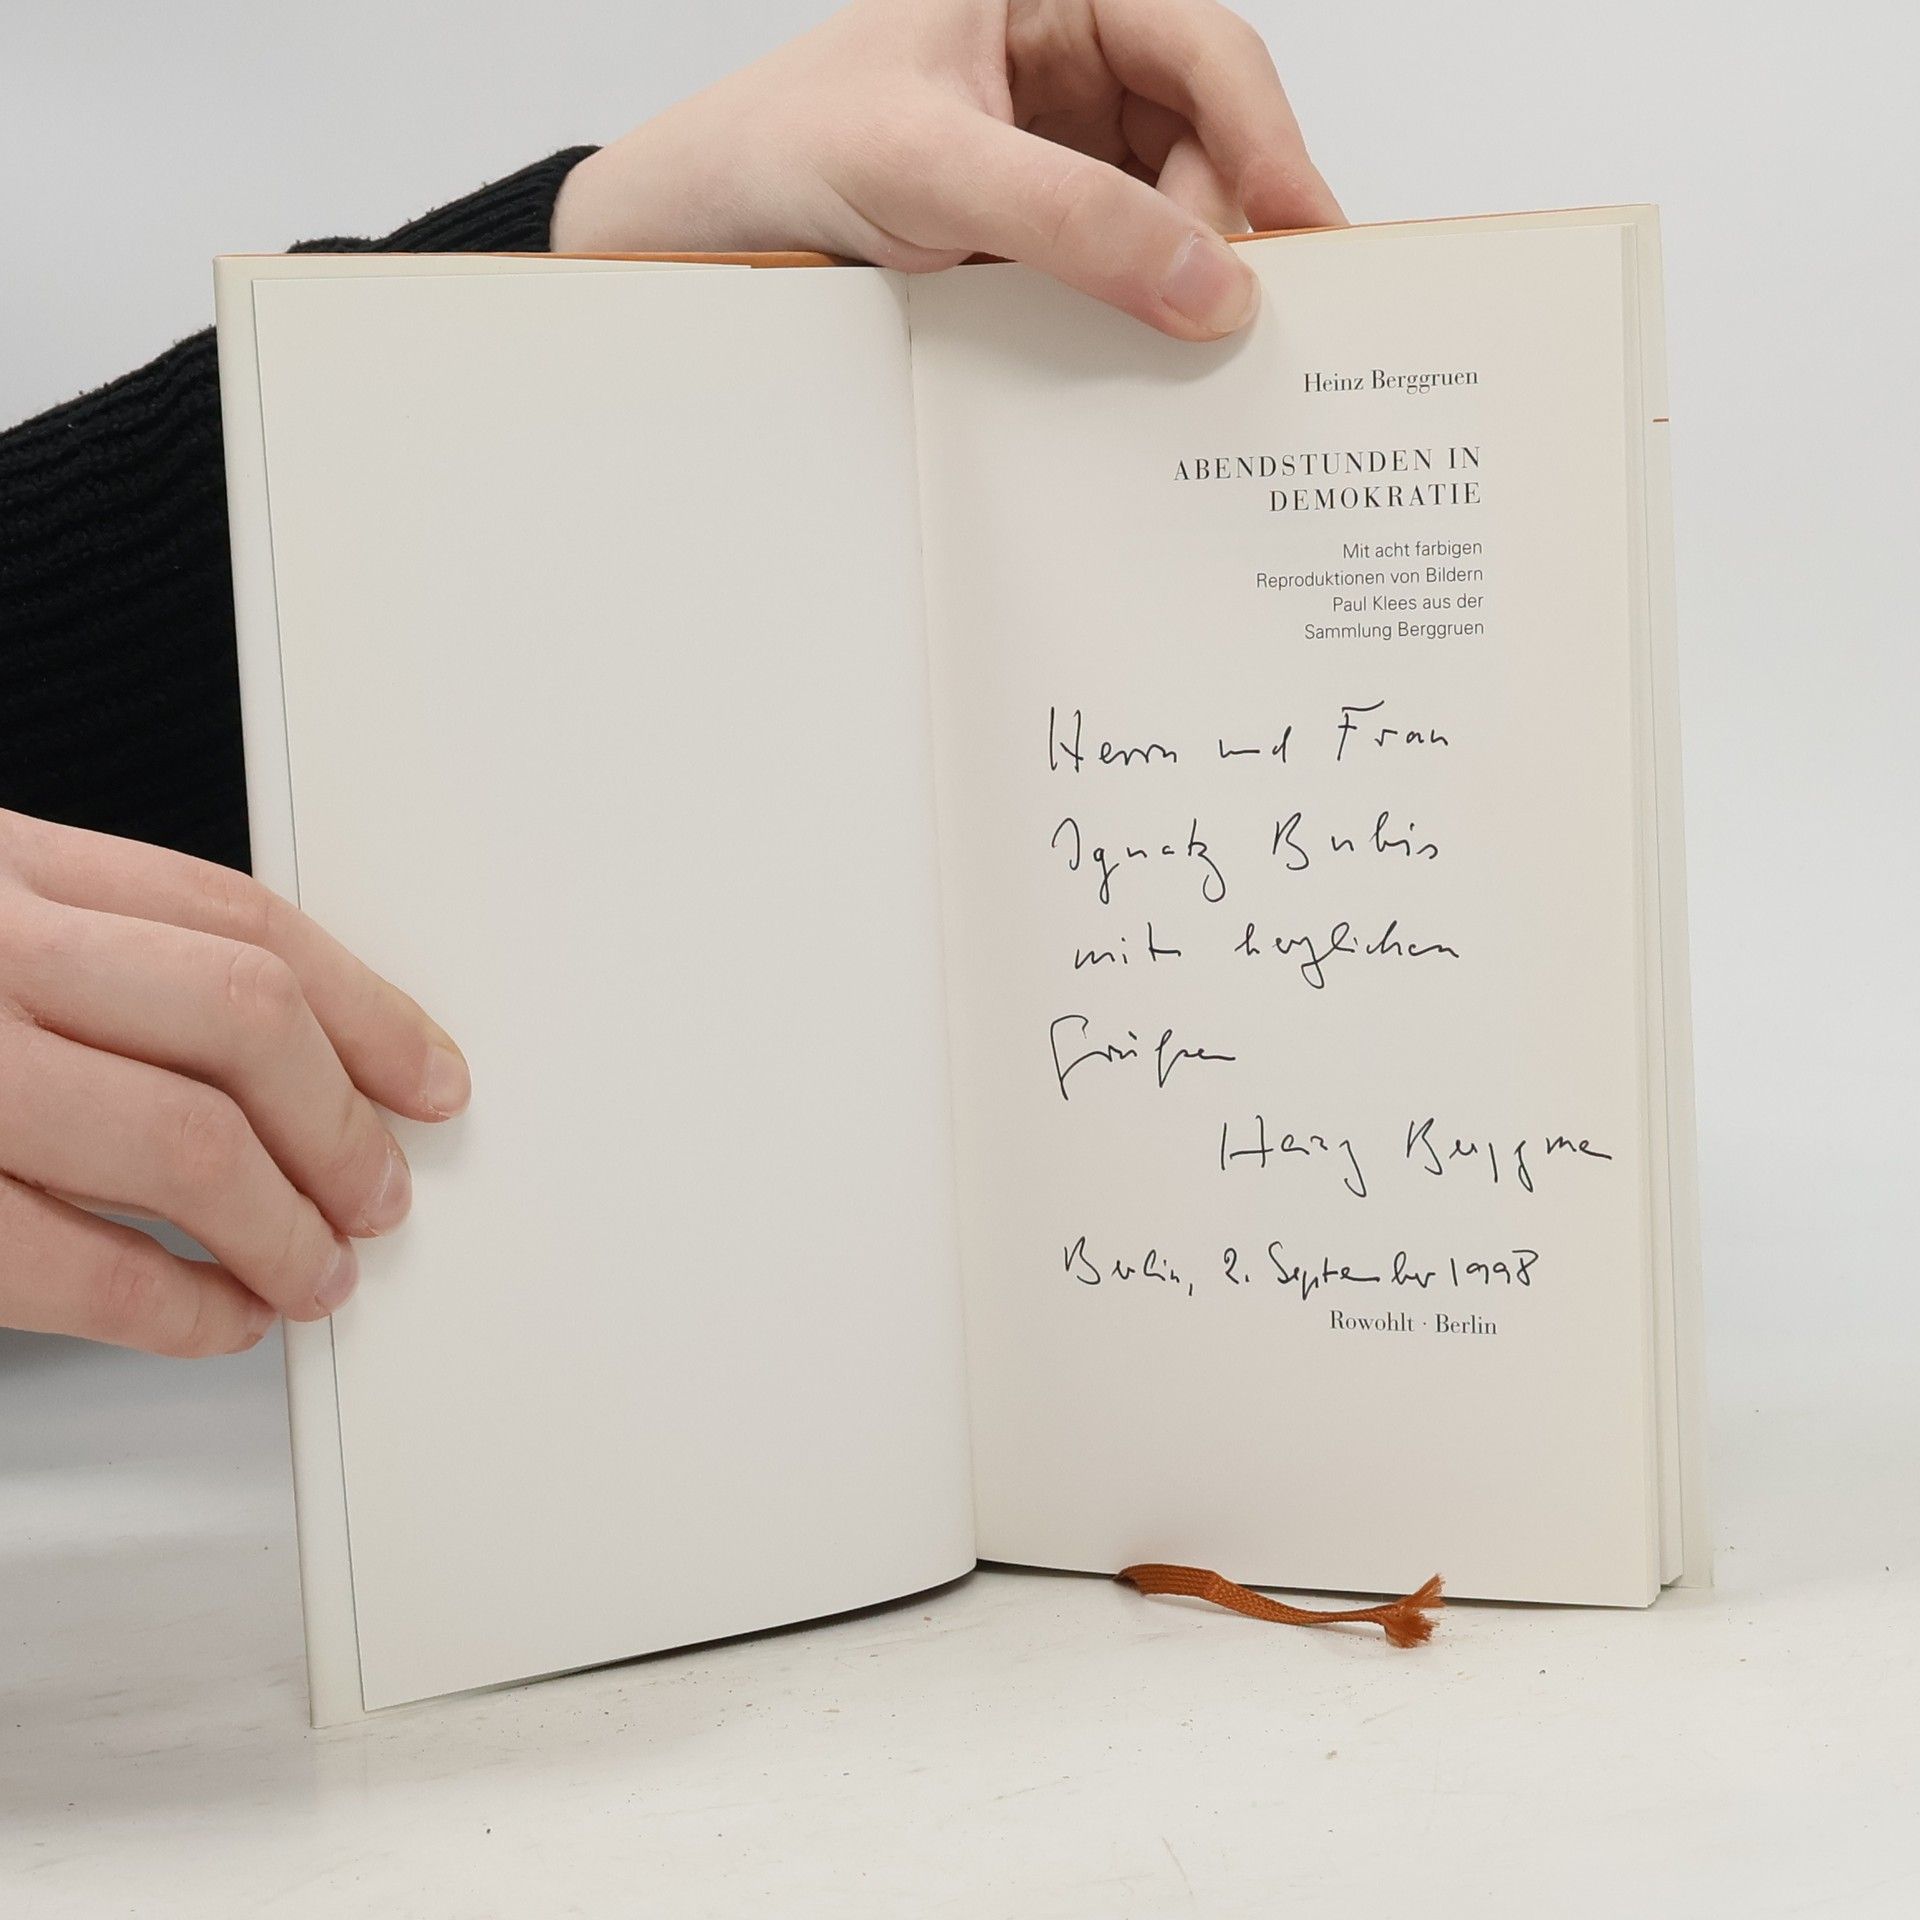 Heinz Berggruen
ABENDSTUNDEN IN
DEMOKRATIE
Mit acht farbigen
Reproduktionen von Bildern
Paul Klees aus der
Sammlung Berggruen
Herrn und Frau
Ignatz Bubis
mit herzlichen
Grüßen
Heinz Berggruen
Berlin, 2. September 1998
Rowohlt · Berlin